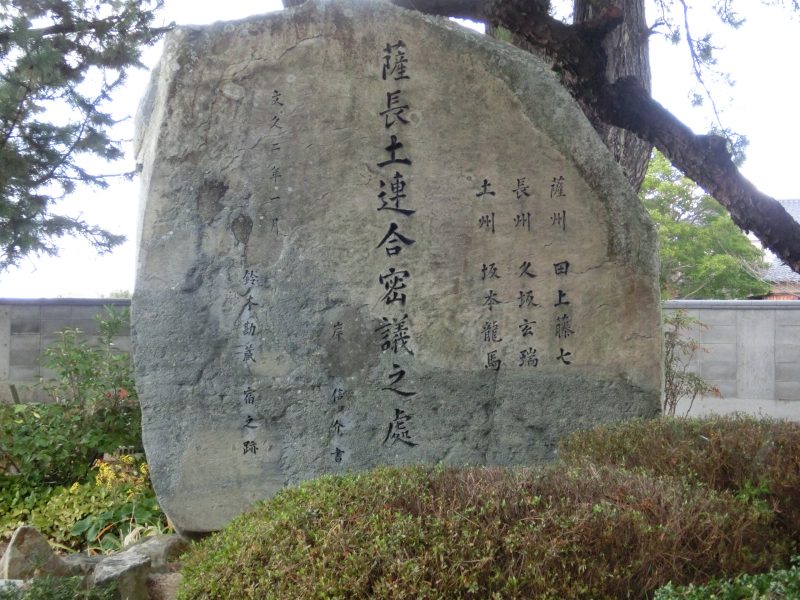 薩州 田上藤七
長州 久坂玄瑞
土州 坂本龍馬
薩長土連合密議之處
岸 信介書
文久二年一月
鈴木勘蔵 宿之跡